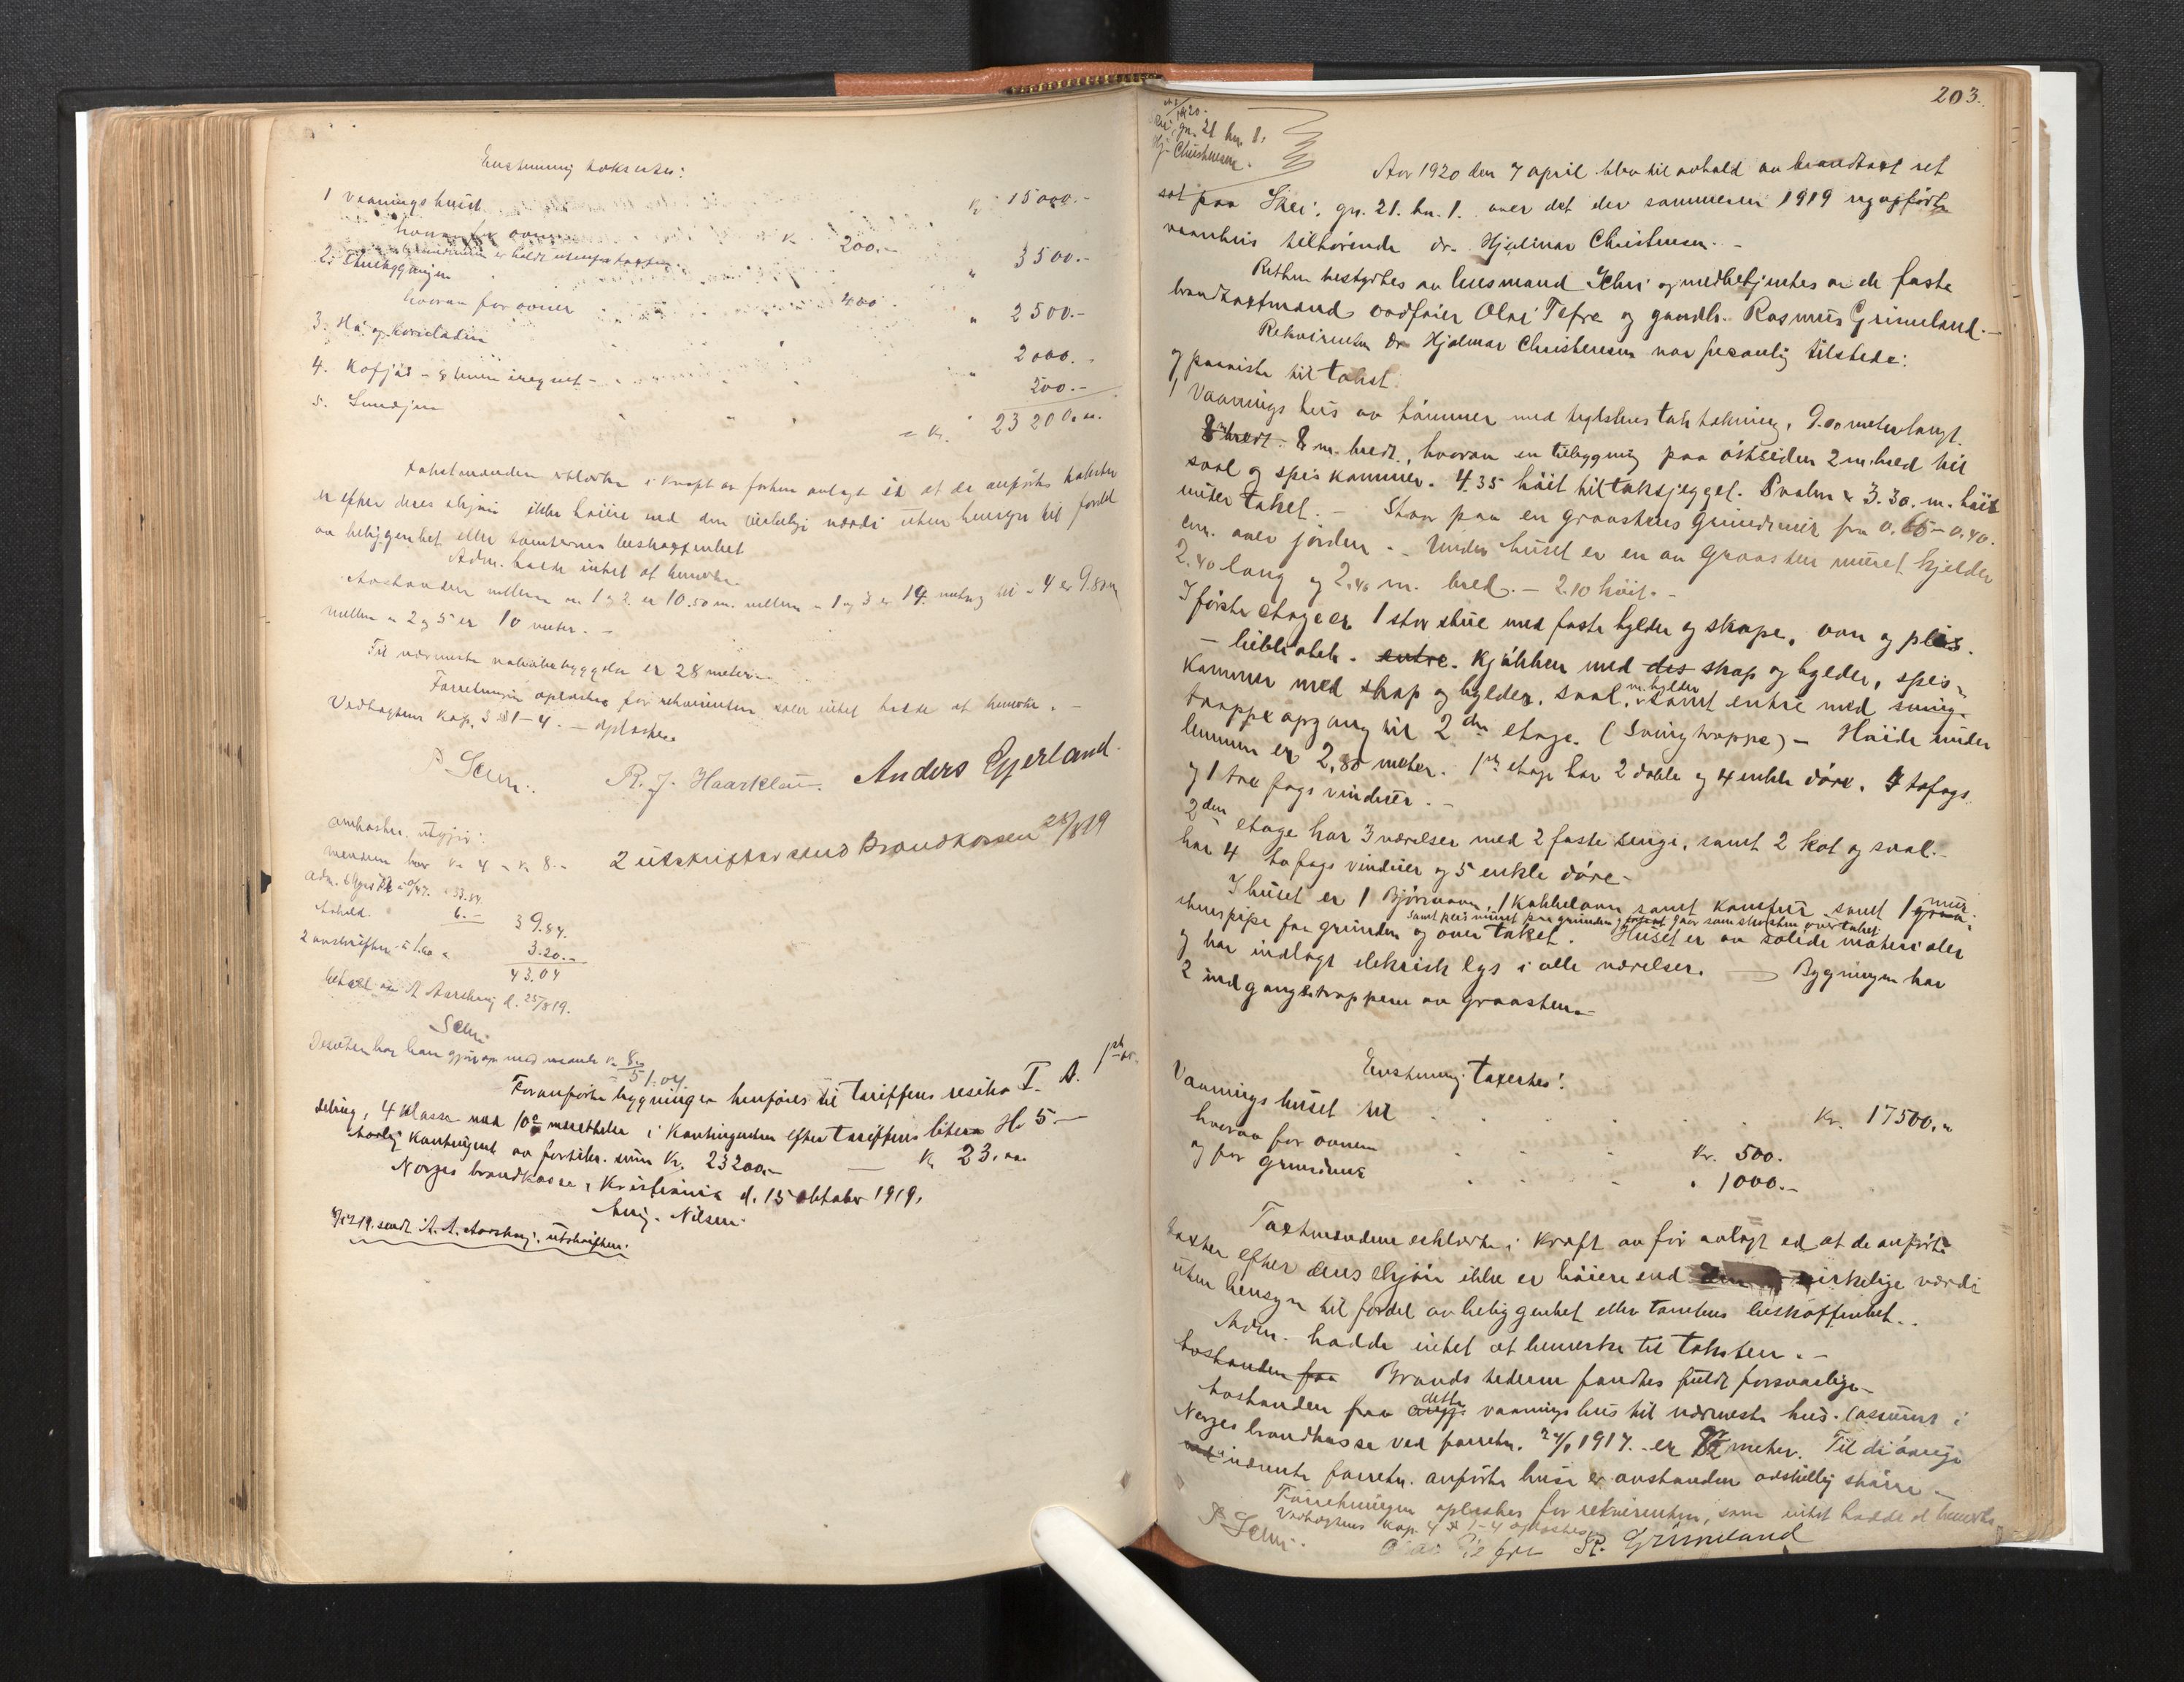 Enstemmig taksertes:
1 Vaaningshuset kr 15000.-
hvorav for ovnen kr 200.-
Grundmuren er holdt utenfor taksten.
2. Stuebygningen " 3500.-
hvorav for ovner 400.-
3. Hø og Kornladen " 2500.-
4. Kofjøs - " 2000.-
5. Smedjen 200.-
= kr. 23200.00.
Takstmændene erklærte i kraft av forhen avlagt ed at de anførte takster
er efter deres skjøn ikke høiere end den virkelige værdi uten hensyn til fordel
av beliggenhet eller tomternes beskaffenhet
Adm. hadde intet at bemerke.
Avstanden mellem nr. 1 og 2 er 10.50 m. mellem - 1 og 3 er 14 meter og til - 4 er 9.80 m
mellem nr 2 og 5 er 10 meter. -
Til nærmeste nabobebyggelse er 28 meter. -
Forretningen oplæstes for rekvirenten som intet hadde at bemerke. -
Vedtægtens Kap. 3 § 1-4. - oplæstes
R. J. Haarklau. Anders Gjerland.
2 utskrifter send Brandkassen 25/8 19
omkostn. utgjør:
mændene hver kr 4 = kr 8.-
33.84
6.- 39.84.
2 avskrifter à 1.60 = 3.20.-
43.04
betalt av A. Aarskog d. 25/8 19.
Desuten har han gjort op med mænde kr 8.00
= 51.04.
Foranførte bygninger henføres til tariffens resiko I. A. 1ste av-
deling, 4 klasse med 10% moderation i Kontingenten efter tariffens litera H. 5.-
Aarlig Kontingent av forsikr. sum Kr. 23200.- — Kr 23.00
Norges brandkasse, Kristiania d. 15 oktober 1919.
Nilsen.
sendt A. A. Aarskog, utskriften.
203.
1920.
gn. 21 bn. 1.
Hj. Christensen.
Aar 1920 den 7 april blev til avhold av brandtaxt ret
sat paa Skei, gn. 21. bn. 1. over det der sommeren 1919 nyopførte
vaanhus tilhørende dr. Hjalmar Christensen. -
Retten bestyrtes av lensmand Schei og medbetjentes av de faste
brandtaxtmænd ordfører Olai Tefre og gaardbr. Rasmus Grimeland. -
Rekvirenten Dr Hjalmar Christensen var personlig tilstede:
og paaviste til takst.
1 Vaanings hus av tømmer med teglstens tak tækning, 9.00 meter langt.
8 bredt. 8 m. bredt, hvorav en tilbygning paa østsiden 2 m. bred til
sval og spis kammer. 4.35 høit til takskjegget. Svalen er 3.30. m. høit
under taket. - Staar paa en graastens grundmur fra 0.65 - 0.40.
cm. over jorden. - Under huset er en av graasten muret kjelder
2.40 lang og 2.40 m. bred. - 2.10 høit. -
I første etage er 1 stor stue med faste hylder og skape, ovn og pies.
- bibliotek. entre. Kjøkken med des skap og hylder, spis-
kammer med skap og hylder, sval m. hylder samt entre med sving-
trappe opgang til 2den etage. (Svingtrappe) - Høide under
lemmen er 2,80 meter. 1ste etage har 2 doble og 4 enkle døre. 4 tofags
og 1 tre fags vinduer. -
2den etage har 3 værelser med 2 faste senge, samt 2 kot og sval. -
har 4 to fags vinduer og 5 enkle døre -
I huset er 1 Bjørnovn, 1 kakkelovn samt komfur samt 1 graa mur-
stenspipe fra grunden og over taket. Huset er av solide materialer
samt peis muret fra grunden og gaar som skorsten over taket
og har indlagt elektrisk lys i alle værelser. - Bygningen har
2 indgangstrapper av graasten. -
Enstemmig taxertes:
Vaanings huset til kr. 17500.00
hvorav for ovnen kr. 500.
og for grundmur " 1000.-
Taxtmændene erklærte i kraft av før avlagt ed at de anførte
taxter efter deres skjøn ikke er høiere end den virkelige værdi
uten hensyn til fordel av beliggenhet eller tomtens beskaffenhet. -
Adm. hadde intet at bemerke til taksten. -
Avstanden fra Brandstederne fandtes fuldt forsvarlige -
Avstanden fra dette vaanings hus til nærmeste hus. (assurert i
Norges brandkasse ved forretn. 24/1 1917. er 82 meter. Til de øvrige
i nævnte forretn. anførte huse er avstanden adskillig større -
Forretningen oplæstes for rekvirenten, som intet hadde at bemerke
Vedtægtens Kap. 4 § 1-4 oplæstes
Olai Tefre R. Grimeland